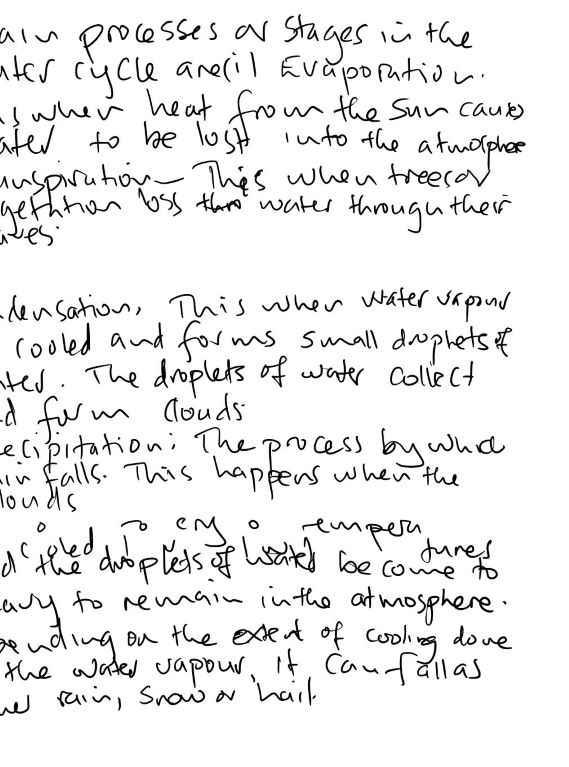 ain processes or stages in the
ater cycle are(i) Evaporation.
is when heat from the sun causes
ater to be lost into the atmosphere
anspiration — This when trees or
getation loss water through their
aves.
ndensation, This when water vapour
cooled and forms small droplets of
ater. The droplets of water collect
d form clouds
ecipitation: The process by which
in falls. This happens when the
louds
cooled To temperatures
d the droplets of water become to
avy to remain in the atmosphere.
pending on the extent of cooling done
the water vapour, it can fall as
rain, snow or hail.